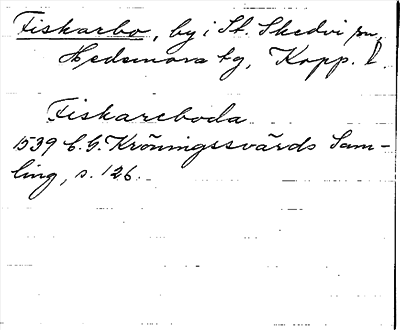 Fiskarbo, by i St. Skedvi sn,
Hedemora tg, Kopp. l.
Fiskareboda
1539 C. G. Kröningssvärds Sam-
ling, s. 126.